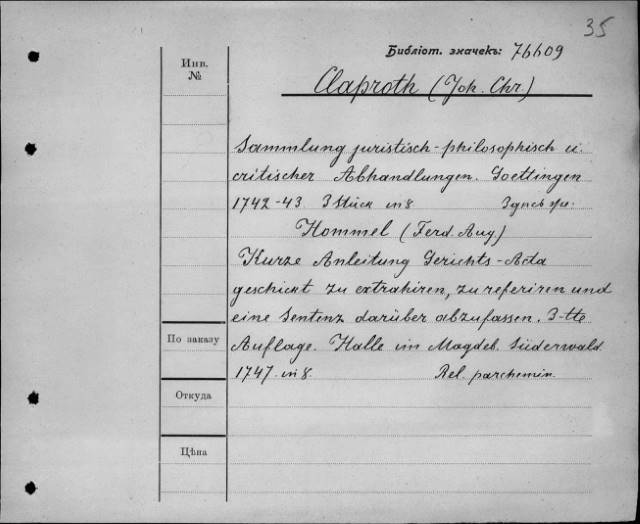 35
Библіот. значекъ: 76609
Инв.
№
Claproth (Joh. Chr.)
Sammlung juristisch-philosophisch u.
critischer Abhandlungen. Goettingen
1742-43 3 Stück in 8
Hommel (Ferd. Aug)
Kurze Anleitung Gerichts-Acta
geschickt zu extrahiren, zu referiren und
eine Sentenz darüber abzufassen. 3-tte
По заказу
Auflage. Halle im Magdeb. Süderwald
1747. in 8. Rel. parchemin
Откуда
Цѣна